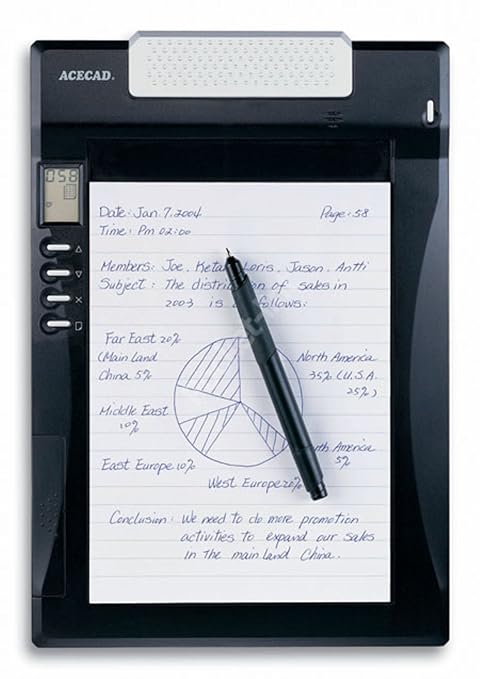 ACECAD.
058
Date: Jan. 7, 2004 Page: 58
Time: Pm 02:00
Members: Joe. Loris. Jason. Antti
Subject: The of sales in
2003 is follows:
Far East 20%
(Main land
China 5%
North America
35% (U.S.A.
25%)
Middle East
10%
America
5%
East Europe 10%
West Europe 20%
Conclusion: We need to do more promotion
activities to expand our sales
in the main land China.